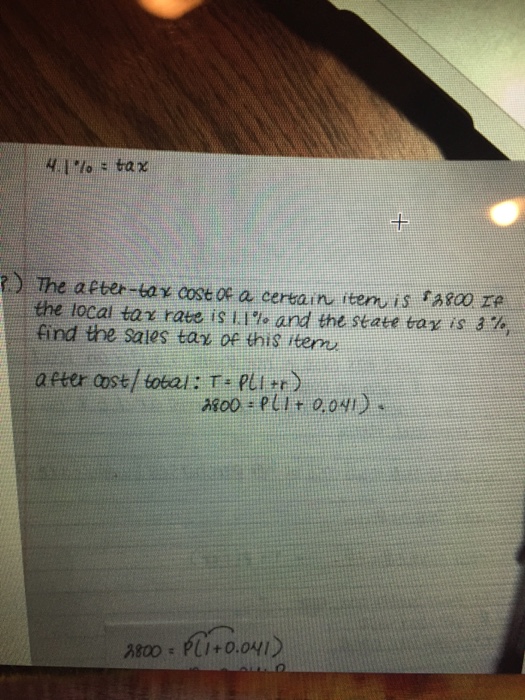 4.1% = tax
?.) The after-tax cost of a certain item is $2800 If
the local tax rate is 1.1% and the state tax is 3%,
find the sales tax of this item
after cost/total: T = P(1+r)
2800 = P(1 + 0.041).
2800 = P(1+0.041)